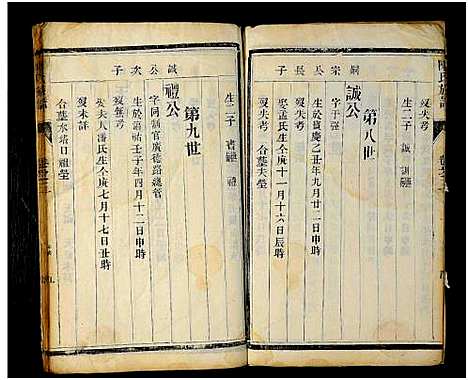 歿失考
生二子 誠 訓
嗣宗公長子
第八世
誠公
生於寶慶乙丑年九月廿二日申時
娶孟氏生仝庚十一月十六日辰時
歿失考
合塟夫塋
生二子 書 禮
誠公次子
第九世
禮公
生於淳祐壬子年四月十二日申時
歿無考
娶夫人潘氏生仝庚七月十七日丑時
歿未詳
合塟水塔口祖塋